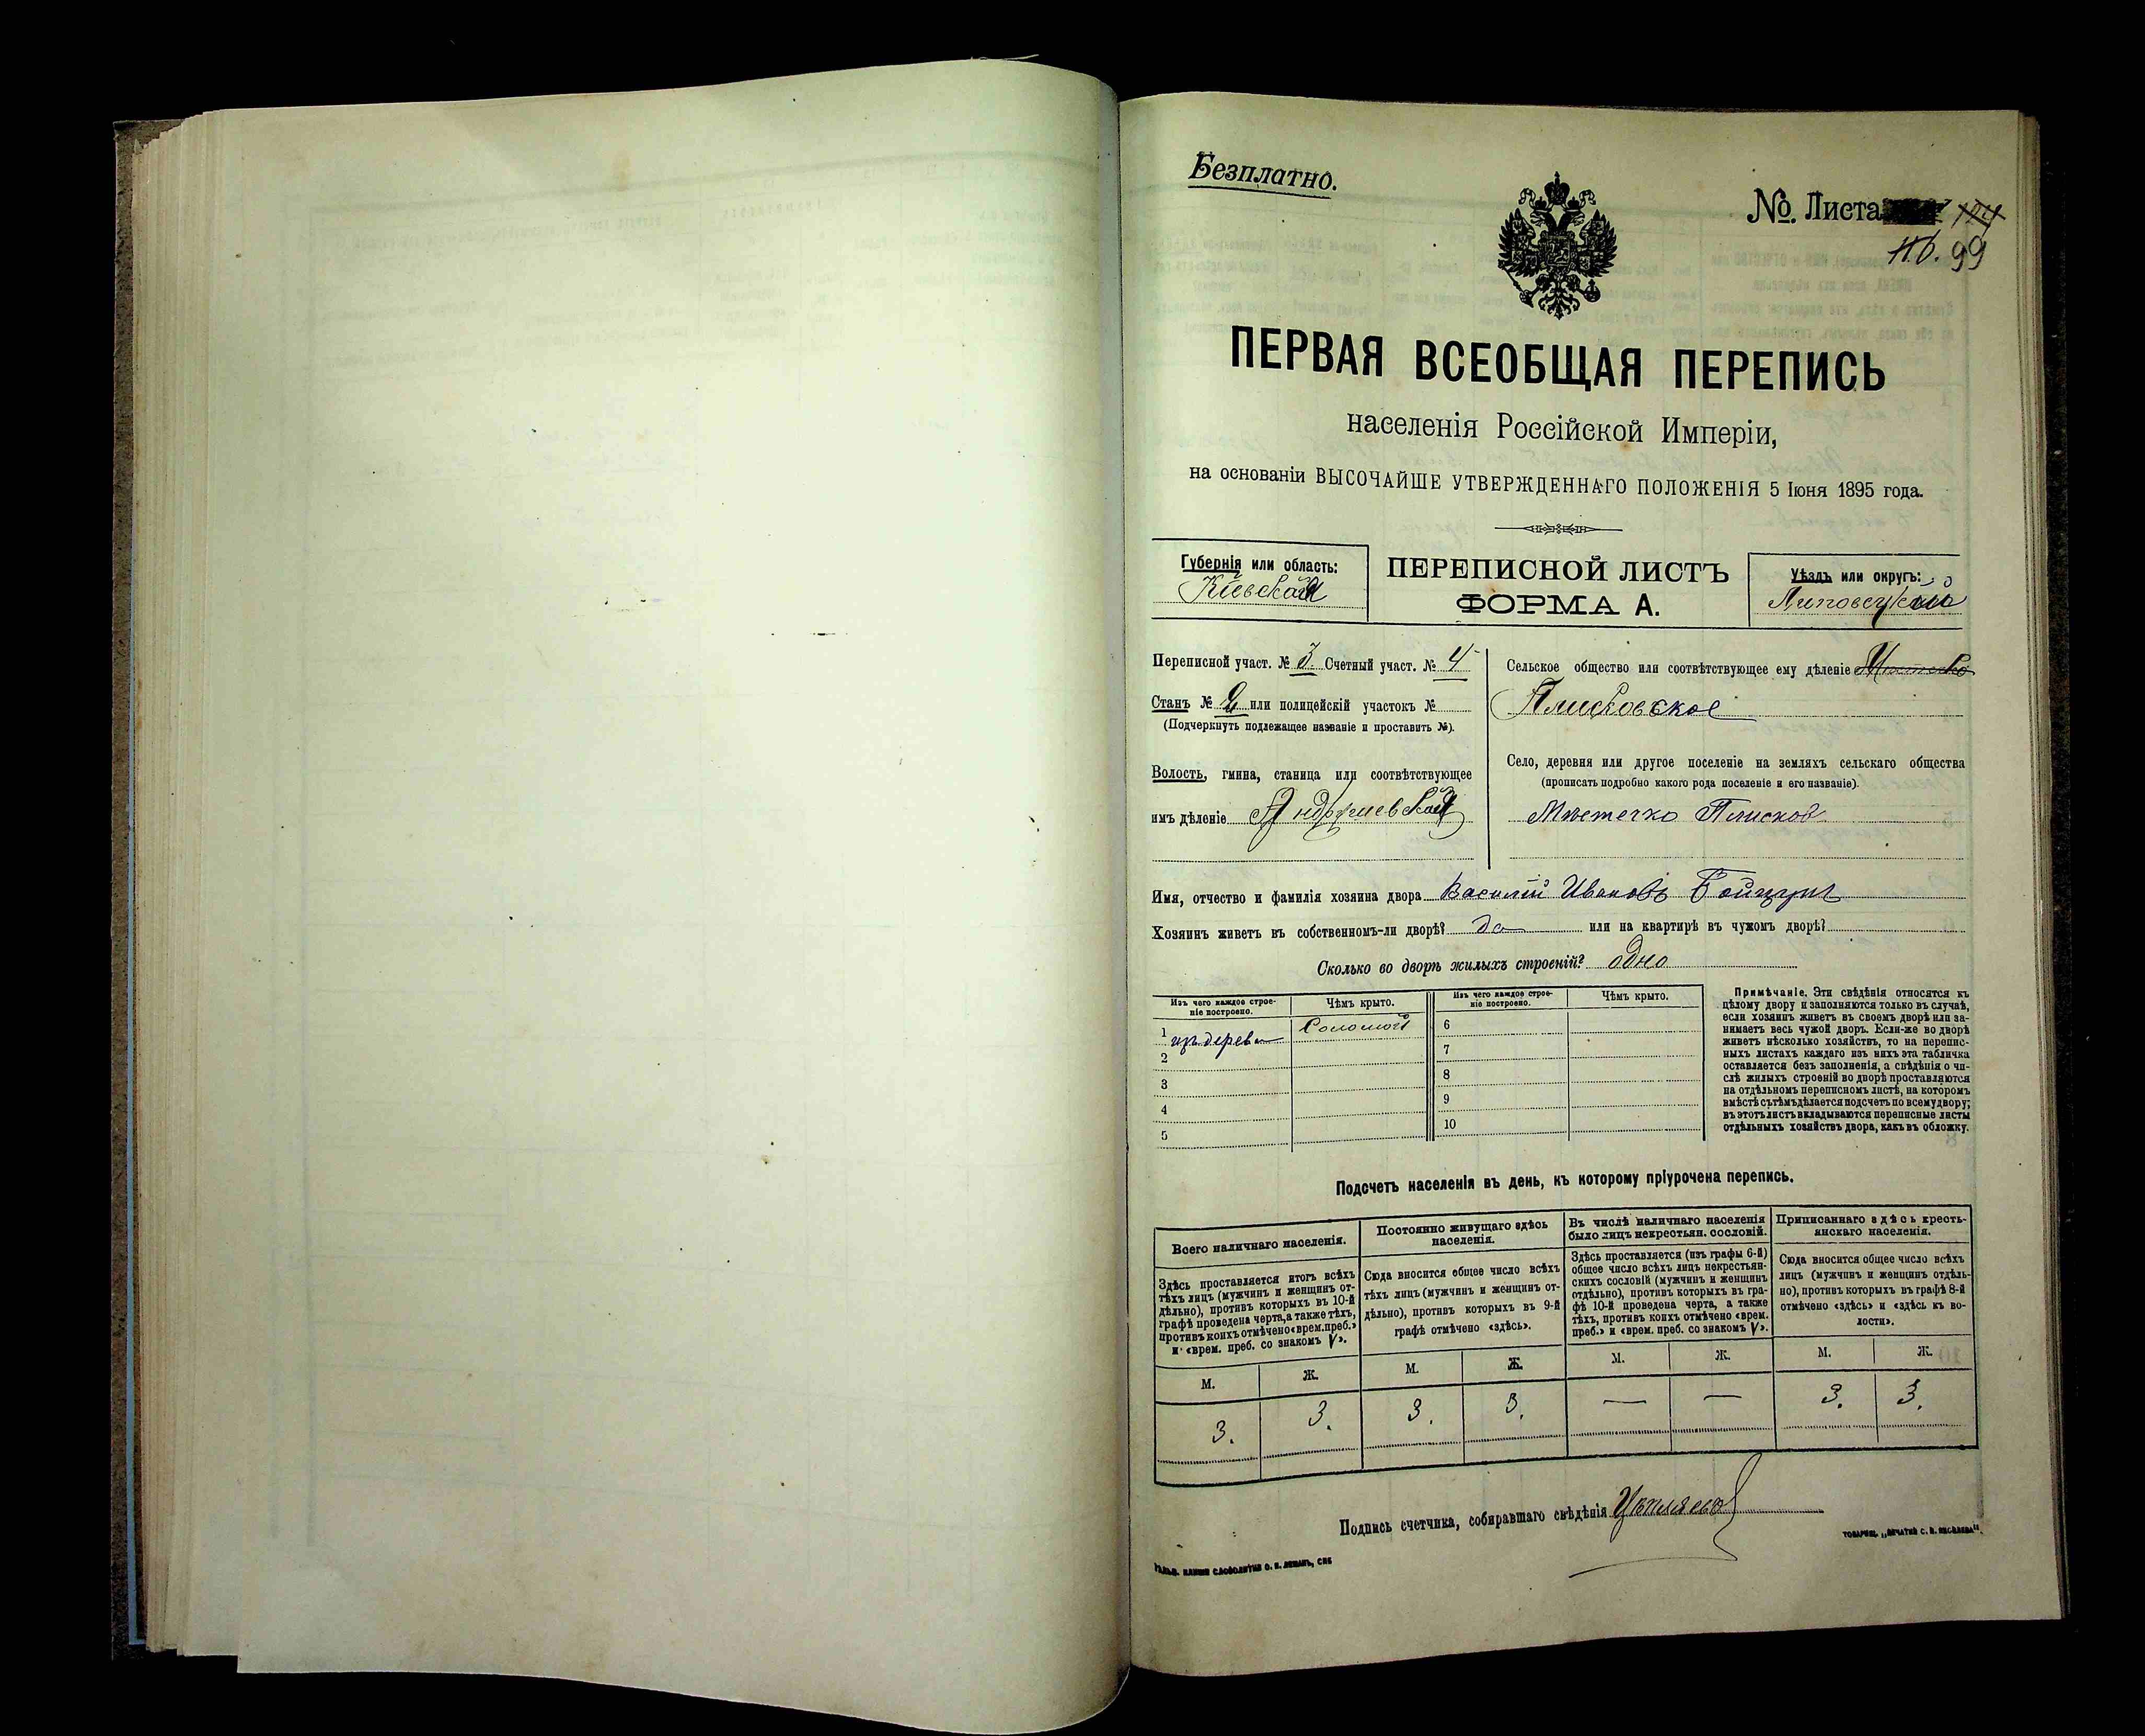 Безплатно.
№. Листа 104
116. 99
ПЕРВАЯ ВСЕОБЩАЯ ПЕРЕПИСЬ
населенія Россійской Имперіи,
на основаніи ВЫСОЧАЙШЕ УТВЕРЖДЕННАГО ПОЛОЖЕНІЯ 5 Іюня 1895 года.
Губернія или область:
Кіевская
ПЕРЕПИСНОЙ ЛИСТЪ
ФОРМА А.
Уѣздъ или округъ:
Липовецкій
Переписной участ. № 3. Счетный участ. № 4
Станъ № 2 или полицейскій участокъ №
(Подчеркнуть подлежащее названіе и проставить №).
Волость, гмина, станица или соотвѣтствующее
имъ дѣленіе Андрушевская
Сельское общество или соотвѣтствующее ему дѣленіе Мѣстечко
Плисковское
Село, деревня или другое поселеніе на земляхъ сельскаго общества
(прописать подробно какого рода поселеніе и его названіе).
Мѣстечко Плисков
Имя, отчество и фамилія хозяина двора Василій Ивановъ
Хозяинъ живетъ въ собственномъ-ли дворѣ? да или на квартирѣ въ чужомъ дворѣ?
Сколько во дворѣ жилыхъ строеній? одно
Изъ чего каждое строе-
ніе построено.
Чѣмъ крыто.
Изъ чего каждое строе-
ніе построено.
Чѣмъ крыто.
1 изъ дерева Соломой
2
3
4
5
6
7
8
9
10
Примѣчаніе. Эти свѣдѣнія относятся къ
цѣлому двору и заполняются только въ случаѣ,
если хозяинъ живетъ въ своемъ дворѣ или за-
нимаетъ весь чужой дворъ. Если-же во дворѣ
живетъ нѣсколько хозяйствъ, то на перепис-
ныхъ листахъ каждаго изъ нихъ эта табличка
оставляется безъ заполненія, а свѣдѣнія о чи-
слѣ жилыхъ строеній во дворѣ проставляются
на отдѣльномъ переписномъ листѣ, на которомъ
вмѣстѣ съ тѣмъ дѣлается подсчетъ по всему двору;
въ этотъ листъ вкладываются переписные листы
отдѣльныхъ хозяйствъ двора, какъ въ обложку.
Подсчетъ населенія въ день, къ которому пріурочена перепись.
Всего наличнаго населенія.
Здѣсь проставляется итогъ всѣхъ
тѣхъ лицъ (мужчинъ и женщинъ от-
дѣльно), противъ которыхъ въ 10-й
графѣ проведена черта, а также тѣхъ,
противъ коихъ отмѣчено «врем. преб.»
и «врем. преб. со знакомъ V».
М. Ж.
3. 3.
Постоянно живущаго здѣсь
населенія.
Сюда вносится общее число всѣхъ
тѣхъ лицъ (мужчинъ и женщинъ от-
дѣльно), противъ которыхъ въ 9-й
графѣ отмѣчено «здѣсь».
М. Ж.
3. 3.
Въ числѣ наличнаго населенія
было лицъ некрестьян. сословій.
Здѣсь проставляется (изъ графы 6-й)
общее число всѣхъ лицъ некрестьян-
скихъ сословій (мужчинъ и женщинъ
отдѣльно), противъ которыхъ въ гра-
фѣ 10-й проведена черта, а также
тѣхъ, противъ коихъ отмѣчено «врем.
преб.» и «врем. преб. со знакомъ V».
М. Ж.
— —
Приписаннаго здѣсь кресть-
янскаго населенія.
Сюда вносится общее число всѣхъ
лицъ (мужчинъ и женщинъ отдѣль-
но), противъ которыхъ въ графѣ 8-й
отмѣчено «здѣсь» и «здѣсь къ во-
лости».
М. Ж.
3. 3.
Подпись счетчика, собиравшаго свѣдѣнія